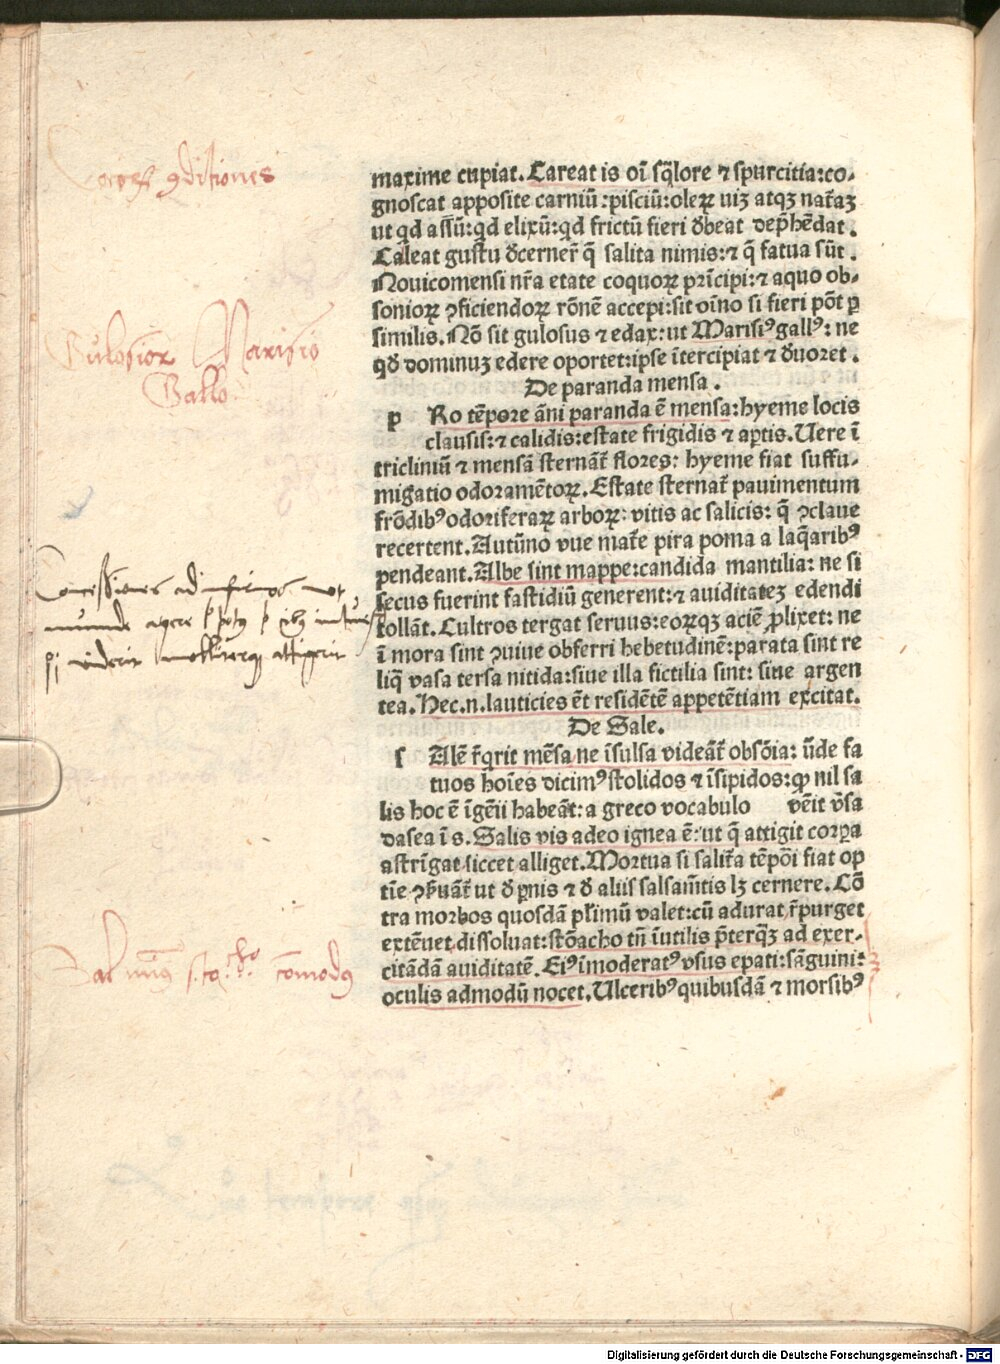 maxime cupiat. Careat is oĩ sq̃lore ⁊ spurcitia: co-
gnoscat apposite carniũ: pisciũ: oleꝝ uiꝫ atqꝫ nat̃aꝫ
ut qd assũ: qd elixũ: qd frictũ fieri ꝺbeat dep̃hẽdat.
Caleat gustu ꝺcerner̃ q̃ salita nimis: ⁊ q̃ fatua sũt.
Nouicomensi nr̃a etate coquoꝝ prĩcipi: ⁊ aquo ob-
sonioꝝ ꝯficiendoꝝ rõnẽ accepi: sit oĩno si fieri põt ꝑ
similis. Nõ sit gulosus ⁊ edax: ut Marisiꝰ gallꝰ: ne
qꝺ dominuꝫ edere oportet: ipse ĩtercipiat ⁊ ꝺuoret.
De paranda mensa.
p Ro tẽpore ãni paranda ẽ mensa: hyeme locis
clausis: ⁊ calidis: estate frigidis ⁊ aꝑtis. Uere ĩ
tricliniũ ⁊ mensã sternãt̃ flores: hyeme fiat suffu-
migatio odoramẽtoꝝ. Estate sternat̃ pauimentum
frõdibꝰ odoriferaꝝ arboꝝ: vitis ac salicis: q̃ ꝯclaue
recertent. Autũno vue mat̃e pira poma a laq̃aribꝰ
pendeant. Albe sint mappe: candida mantilia: ne si
secus fuerint fastidiũ generent: ⁊ auiditateꝫ edendi
tollãt. Cultros tergat seruus: eoꝝqꝫ aciẽ ꝓlixet: ne
ĩ mora sint ꝯuiue obferri hebetudinẽ: parata sint re
liq̃ vasa tersa nitida: siue illa fictilia sint: siue argen
tea. Hec. n. lauticies ẽt residẽtẽ appetẽtiam excitat.
De Sale.
s Alẽ r̃qrit mẽsa ne ĩsulsa videãt̃ obsõia: ũde fa
tuos hoĩes dicimꝰ stolidos ⁊ ĩsipidos: ꝙ nil sa
lis hoc ẽ ĩgẽii habeãt: a greco vocabulo vẽit ṽsa
dasea ĩ s. Salis vis adeo ignea ẽ: ut q̃ attigit corꝑa
astrĩgat siccet alliget. Mortua si salit̃a tẽpõi fiat op
tĩe ꝯẜuãt̃ ut ꝺ ꝑnis ⁊ ꝺ aliis salsam̃tis lꝫ cernere. Cõ
tra morbos quosdã pl̃imũ valet: cũ adurat r̃purget
extẽuet dissoluat: stõacho tñ ĩutilis p̃terqꝫ ad exer-
citãdã auiditatẽ. Eiꝰ ĩmoderatꝰ vsus epati: sãguini:
oculis admodũ nocet. Ulceribꝰ quibusdã ⁊ morsibꝰ
ꝯditiones
Gulosior Marisio
Gallo
Sal
cõmodꝰ
Digitalisierung gefördert durch die Deutsche Forschungsgemeinschaft - DFG